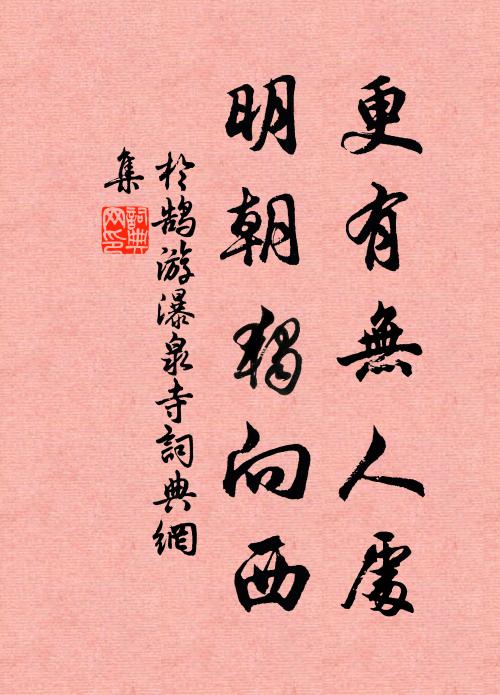 更有無人處
明朝獨向西
於鵠游瀑泉寺詞典網
集
詞典
网印